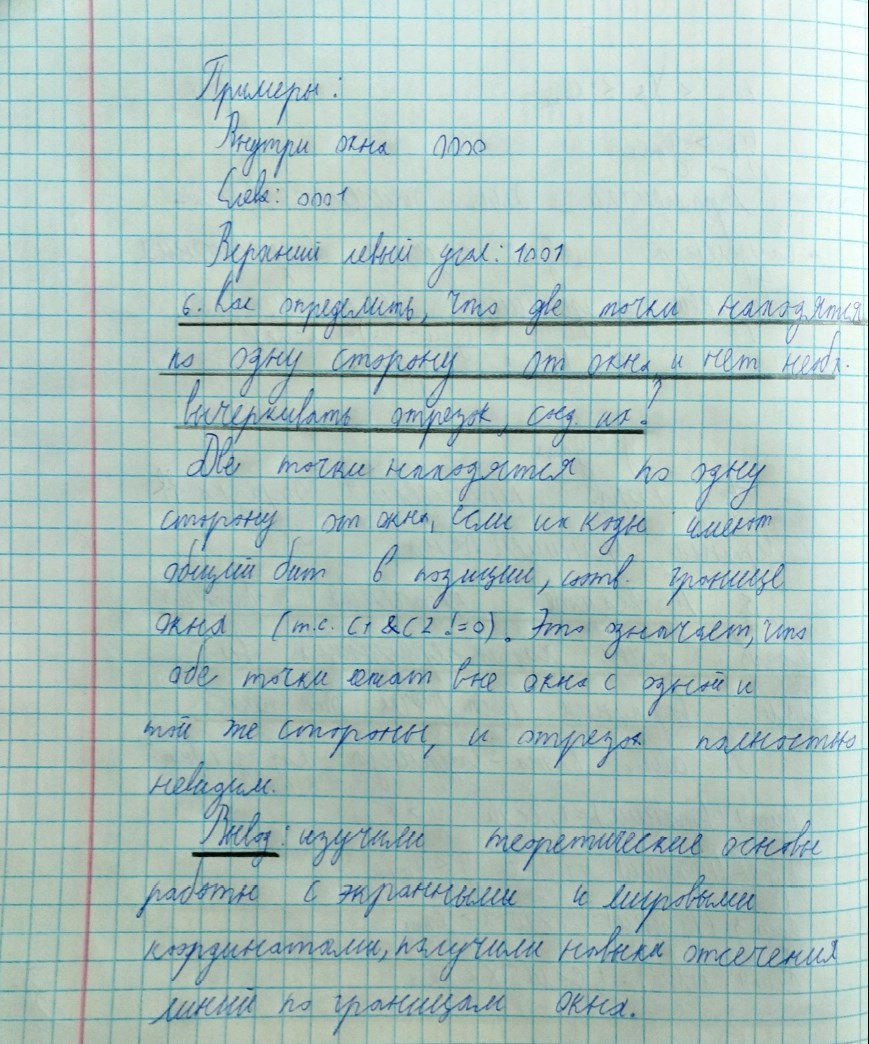 Примеры:
Внутри окна 0000
Слева: 0001
Верхний левый угол: 1001
6. Как определить, что две точки находятся
по одну сторону от окна, и нет необх.
вычеркивать отрезок, соед. их?
Две точки находятся по одну
сторону от окна, если их коды имеют
общий бит в позиции, соотв. границе
окна (т.е. C1 & C2 != 0). Это означает, что
обе точки лежат вне окна с одной и
той же стороны, и отрезок полностью
невидим.
Вывод: изучили теоретические основы
работы с экранными и мировыми
координатами, получили навыки отсечения
линий по границам окна.